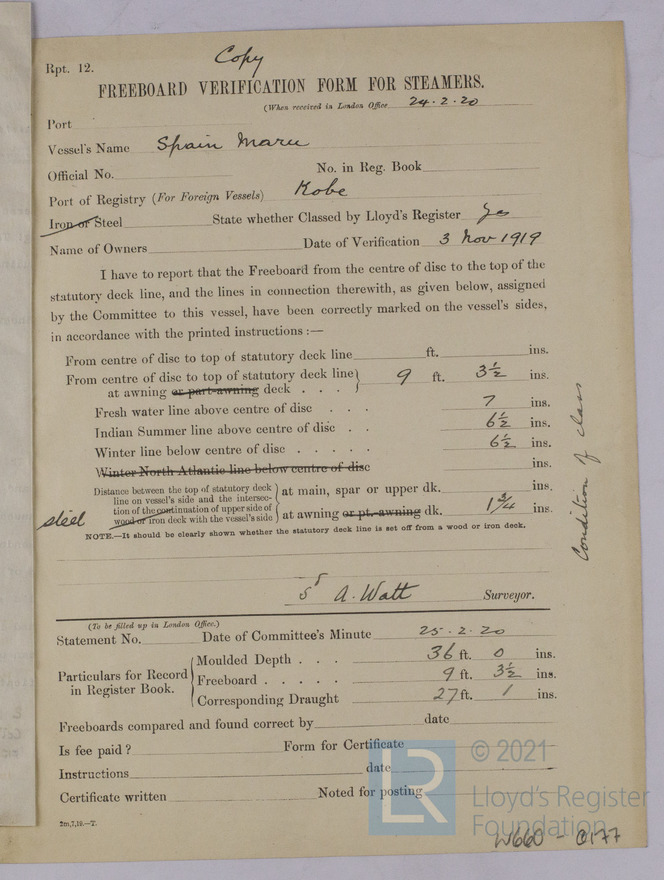 Copy
Rpt. 12.
FREEBOARD VERIFICATION FORM FOR STEAMERS.
(When received in London Office 24.2.20
Port
Vessel's Name Spain Maru
Official No. No. in Reg. Book
Port of Registry (For Foreign Vessels) Kobe
Iron or Steel State whether Classed by Lloyd's Register Yes
Name of Owners Date of Verification 3 Nov 1919
I have to report that the Freeboard from the centre of disc to the top of the
statutory deck line, and the lines in connection therewith, as given below, assigned
by the Committee to this vessel, have been correctly marked on the vessel's sides,
in accordance with the printed instructions :—
From centre of disc to top of statutory deck line ft. ins.
From centre of disc to top of statutory deck line
at awning or part-awning deck . . . 9 ft. 3½ ins.
Fresh water line above centre of disc . . . 7 ins.
Indian Summer line above centre of disc . . 6½ ins.
Winter line below centre of disc . . . . . 6½ ins.
Winter North Atlantic line below centre of disc ins.
Distance between the top of statutory deck
line on vessel's side and the intersec-
tion of the continuation of upper side of
wood or iron deck with the vessel's side
at main, spar or upper dk. ins.
steel
at awning or pt.-awning dk. 1¾ ins.
NOTE.—It should be clearly shown whether the statutory deck line is set off from a wood or iron deck.
Condition of class
A. Watt Surveyor.
(To be filled up in London Office.)
Statement No. Date of Committee's Minute 25.2.20
Particulars for Record
in Register Book.
Moulded Depth . . . 36 ft. 0 ins.
Freeboard . . . . . 9 ft. 3½ ins.
Corresponding Draught 27 ft. 1 ins.
Freeboards compared and found correct by date
Is fee paid ? Form for Certificate
Instructions date
Certificate written Noted for posting
2m,7,19.—T.
LR
© 2021
Lloyd's Register
Foundation
W660 - 0177